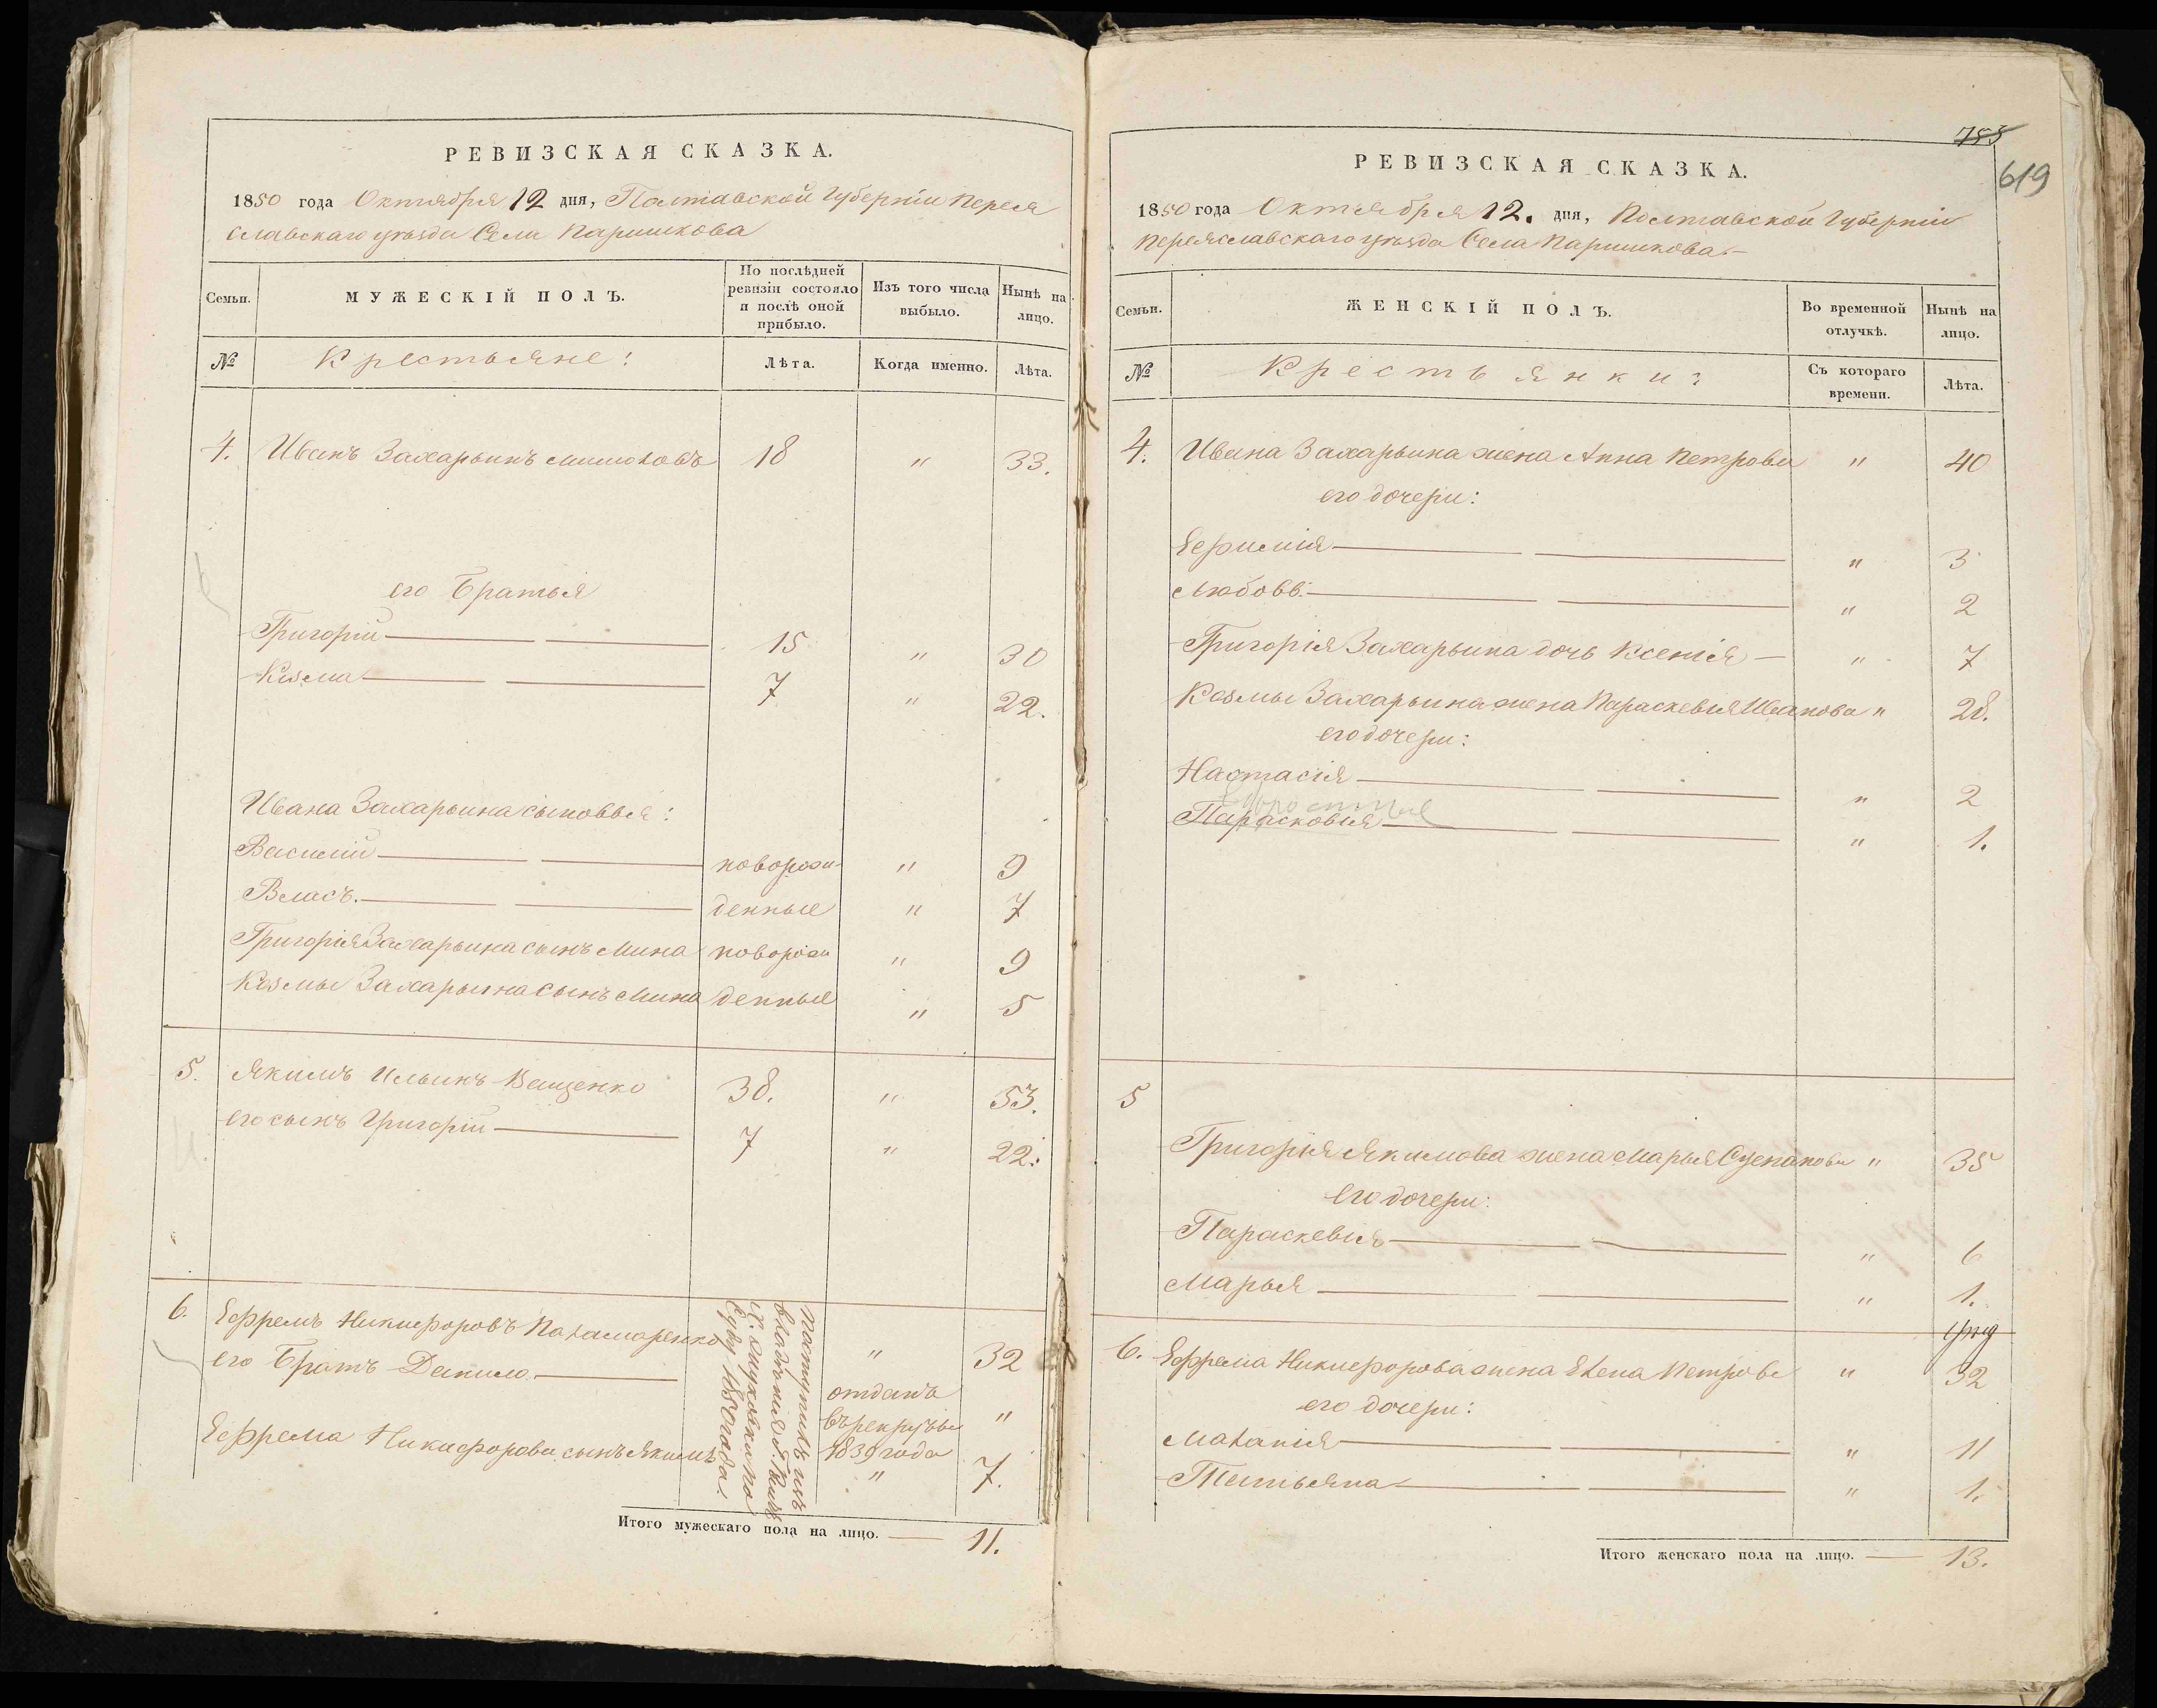 РЕВИЗСКАЯ СКАЗКА.
1850 года Октября 12 дня, Полтавской Губерніи Перея
славскаго уѣзда Села Паришкова
Семьи.
МУЖЕСКІЙ ПОЛЪ.
По послѣдней
ревизіи состояло
и послѣ оной
прибыло.
Изъ того числа
выбыло.
Нынѣ на
лицо.
№
Крестьяне:
Лѣта.
Когда именно.
Лѣта.
4. Иванъ Захарьинъ 18 " 33.
его Братья
Григорій 15 " 30
Козма 7 " 22.
Ивана Захарьина сыновья:
Василій новорож " 9
Власъ. денные " 7
Григорія Захарьина сынъ Мина новорож " 9
Козмы Захарьина сынъ Мина денные " 5
5. Якимъ Ильинъ Ващенко 38. " 53.
его сынъ Григорій 7 " 22.
6. Ефремъ Никифоровъ Паламаренко " 32
его Братъ Данило отданъ
въ рекруты "
1839 года
Ефрема Никифорова сынъ Якимъ " 7.
поступилъ изъ
владѣнія
по
1850 года.
Итого мужескаго пола на лицо. 11.
783
619
РЕВИЗСКАЯ СКАЗКА.
1850 года Октября 12. дня, Полтавской Губерніи
Переяславскаго уѣзда Села Паришкова
Семьи.
ЖЕНСКІЙ ПОЛЪ.
Во временной
отлучкѣ.
Нынѣ на
лицо.
№
Крестьянки:
Съ котораго
времени.
Лѣта.
4. Ивана Захарьина жена Анна Петрова " 40
его дочери:
" 3
Любовь " 2
Григорія Захарьина дочь Ксенія " 7
Козмы Захарьина жена Параскевія Иванова " 28.
его дочери:
Настасія " 2
Парасковія " 1.
5
Григорія Якимова жена Марья Степанова " 35
его дочери:
Параскевія " 6
Марья " 1.
6. Ефрема Никифорова жена Елена Петрова " 32
его дочери:
Маланія " 11
Татьяна " 1.
Итого женскаго пола на лицо. 13.